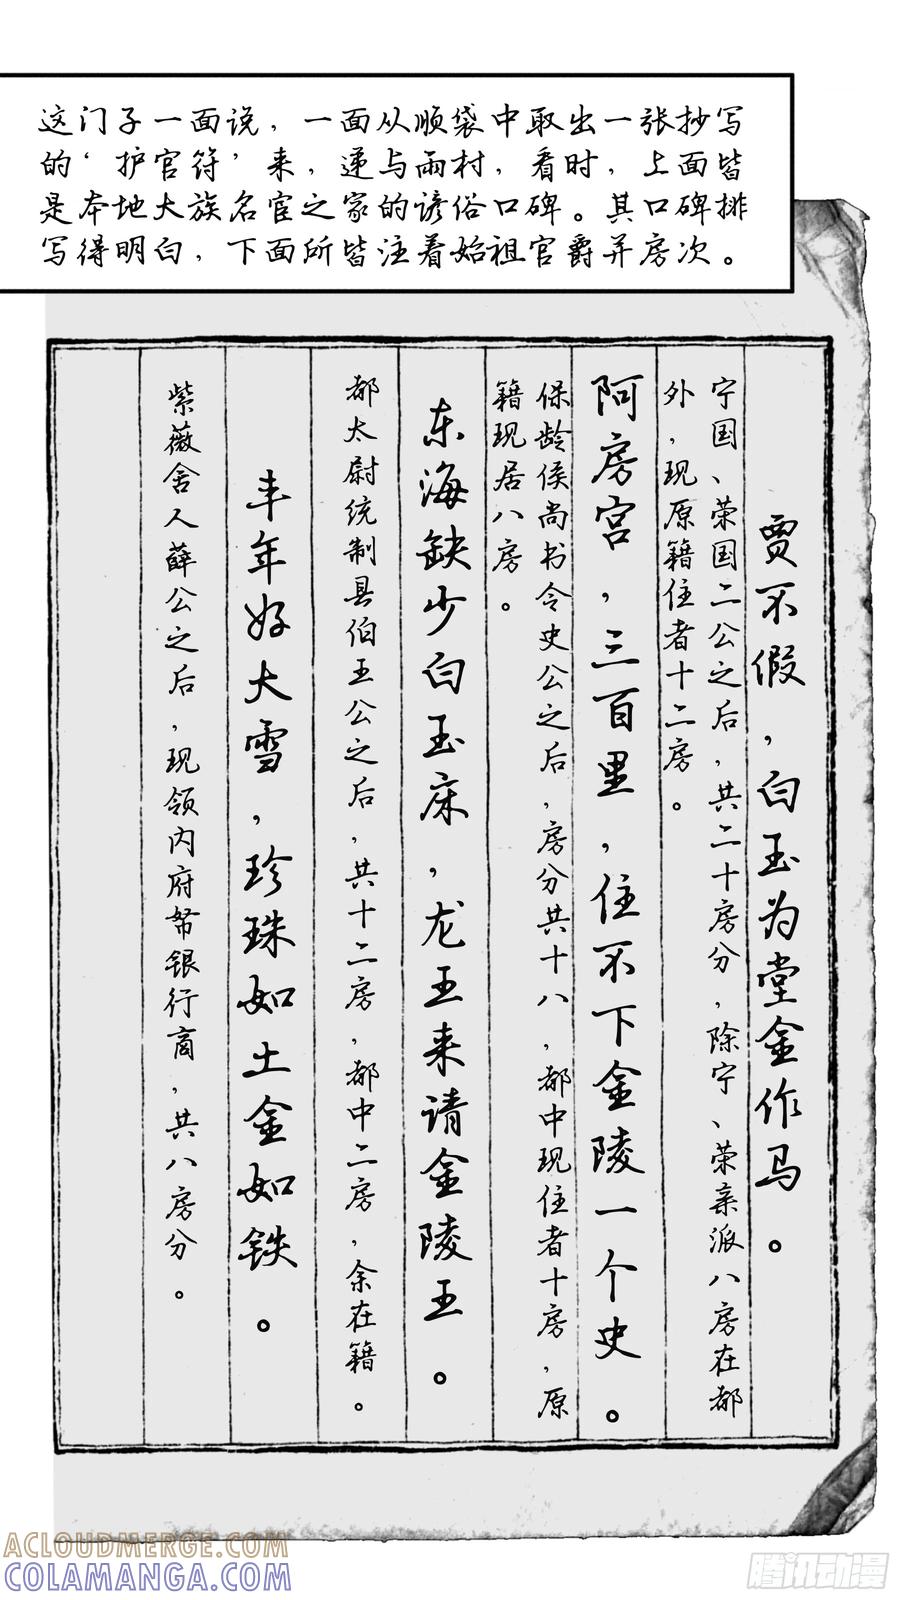 这门子一面说，一面从顺袋中取出一张抄写
的‘护官符’来，递与雨村，看时，上面皆
是本地大族名宦之家的谚俗口碑。其口碑排
写得明白，下面所皆注着始祖官爵并房次。
贾不假，白玉为堂金作马。
宁国、荣国二公之后，共二十房分，除宁、荣亲派八房在都
外，现原籍住者十二房。
阿房宫，三百里，住不下金陵一个史。
保龄侯尚书令史公之后，房分共十八，都中现住者十房，原
籍现居八房。
东海缺少白玉床，龙王来请金陵王。
都太尉统制县伯王公之后，共十二房，都中二房，余在籍。
丰年好大雪，珍珠如土金如铁。
紫薇舍人薛公之后，现领内府帑银行商，共八房分。
ACLOUDMERGE.COM
COLAMANGA.COM
腾讯动漫